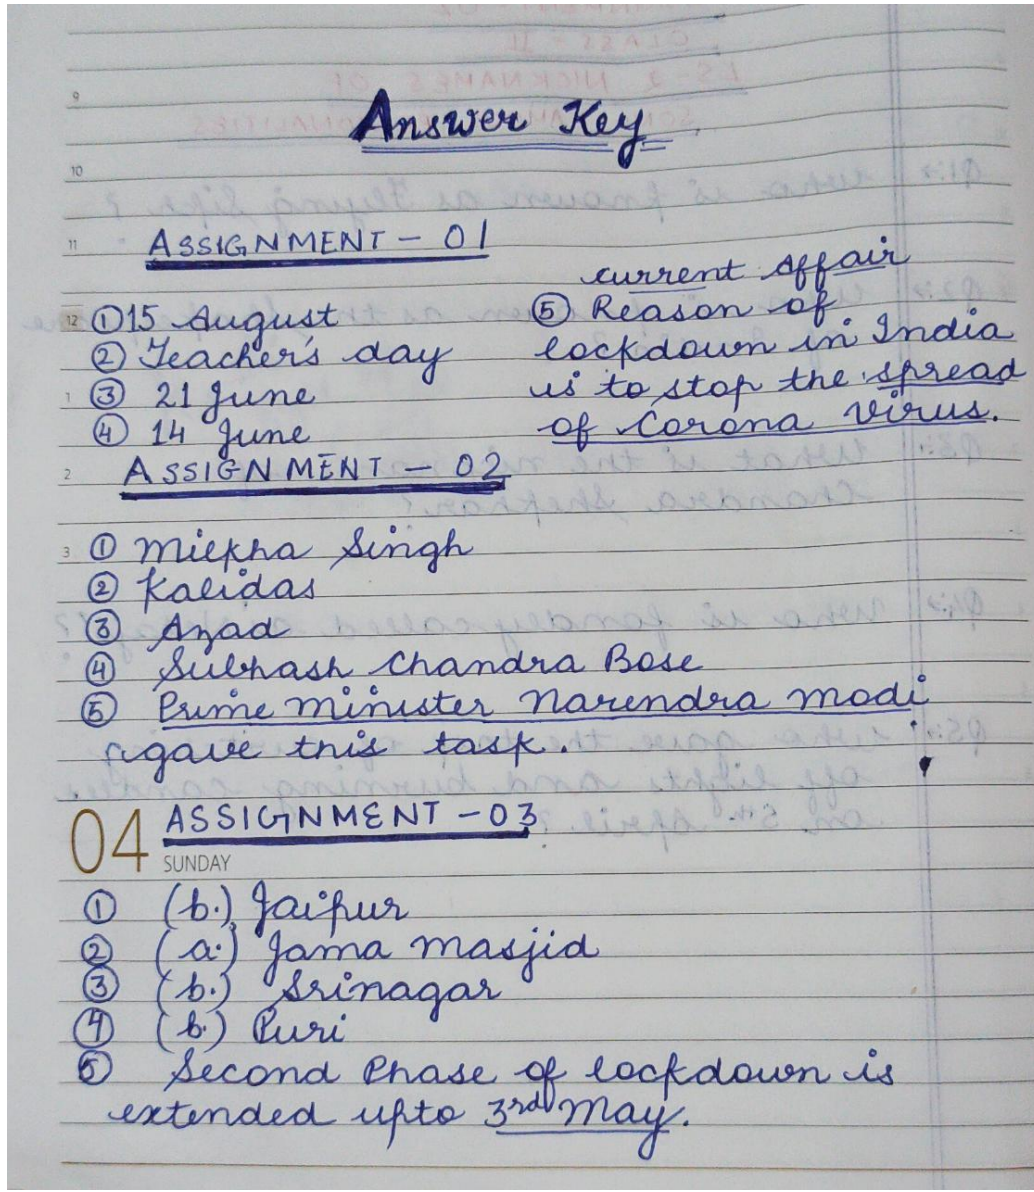 Answer Key
ASSIGNMENT - 01
① 15 August
② Teacher's day
③ 21 June
④ 14 June
current Affair
⑤ Reason of
lockdown in India
is to stop the spread
of Corona virus.
ASSIGNMENT - 02
① Milkha Singh
② Kalidas
③ Azad
④ Subhash Chandra Bose
⑤ Prime Minister Narendra Modi
gave this task.
04 ASSIGNMENT - 03
SUNDAY
① (b.) Jaipur
② (a.) Jama Masjid
③ (b.) Srinagar
④ (b.) Puri
⑤ Second Phase of lockdown is
extended upto 3rd May.
9
10
11
12
1
2
3